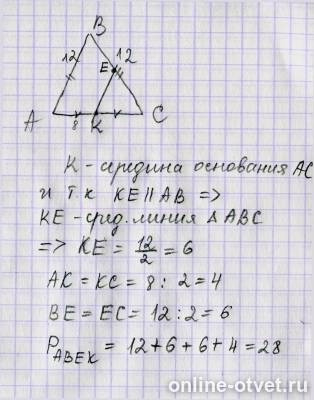 B
12
E
12
A
8
K
C
K - середина основания AC
и т.к KE || AB =>
KE - сред. линия Δ ABC
=> KE = 12/2 = 6
AK = KC = 8 : 2 = 4
BE = EC = 12 : 2 = 6
P ABEK = 12 + 6 + 6 + 4 = 28
online-otvet.ru